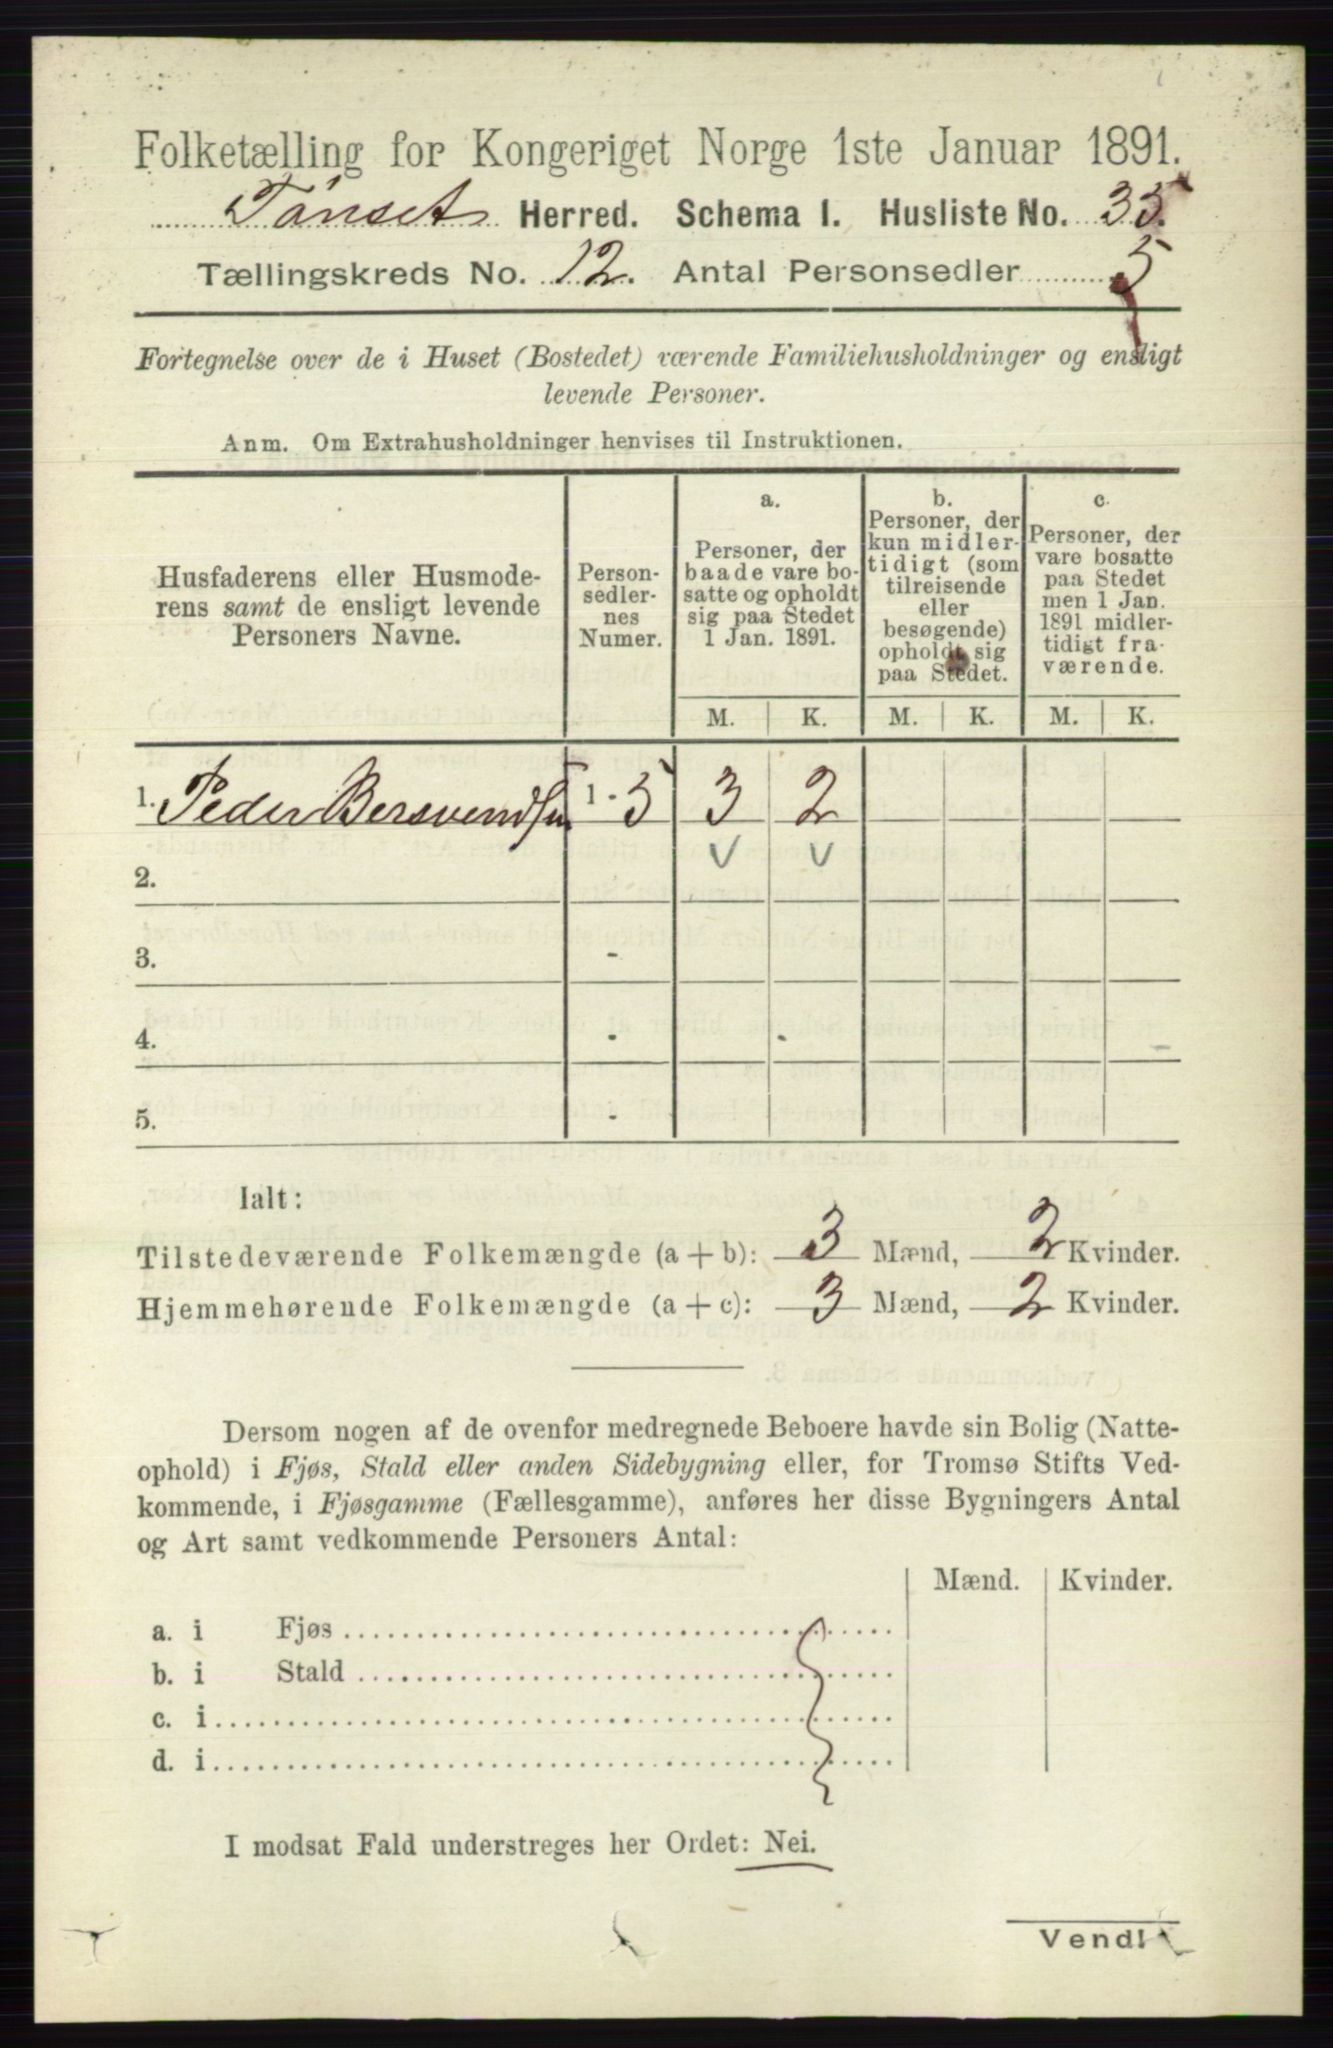 Folketælling for Kongeriget Norge 1ste Januar 1891.
Tönset Herred. Schema I. Husliste No. 35.
Tællingskreds No. 12. Antal Personsedler 5
Fortegnelse over de i Huset (Bostedet) værende Familiehusholdninger og ensligt
levende Personer.
Anm. Om Extrahusholdninger henvises til Instruktionen.
Husfaderens eller Husmode-
rens samt de ensligt levende
Personers Navne.
Person-
sedler-
nes
Numer.
a.
Personer, der
baade vare bo-
satte og opholdt
sig paa Stedet
1 Jan. 1891.
b.
Personer, der
kun midler-
tidigt (som
tilreisende
eller
besøgende)
opholdt sig
paa Stedet.
c.
Personer, der
vare bosatte
paa Stedet
men 1 Jan.
1891 midler-
tidigt fra-
værende.
M. K. M. K. M. K.
1. Peder Bersvendsen 1 - 5 3 2
2.
3. -
4. -
5. -
Ialt:
Tilstedeværende Folkemængde (a + b): 3 Mænd, 2 Kvinder.
Hjemmehørende Folkemængde (a + c): 3 Mænd, 2 Kvinder.
Dersom nogen af de ovenfor medregnede Beboere havde sin Bolig (Natte-
ophold) i Fjøs, Stald eller anden Sidebygning eller, for Tromsø Stifts Ved-
kommende, i Fjøsgamme (Fællesgamme), anføres her disse Bygningers Antal
og Art samt vedkommende Personers Antal:
Mænd. Kvinder.
a. i Fjøs
b. i Stald
c. i
d. i
I modsat Fald understreges her Ordet: Nei.
Vend!